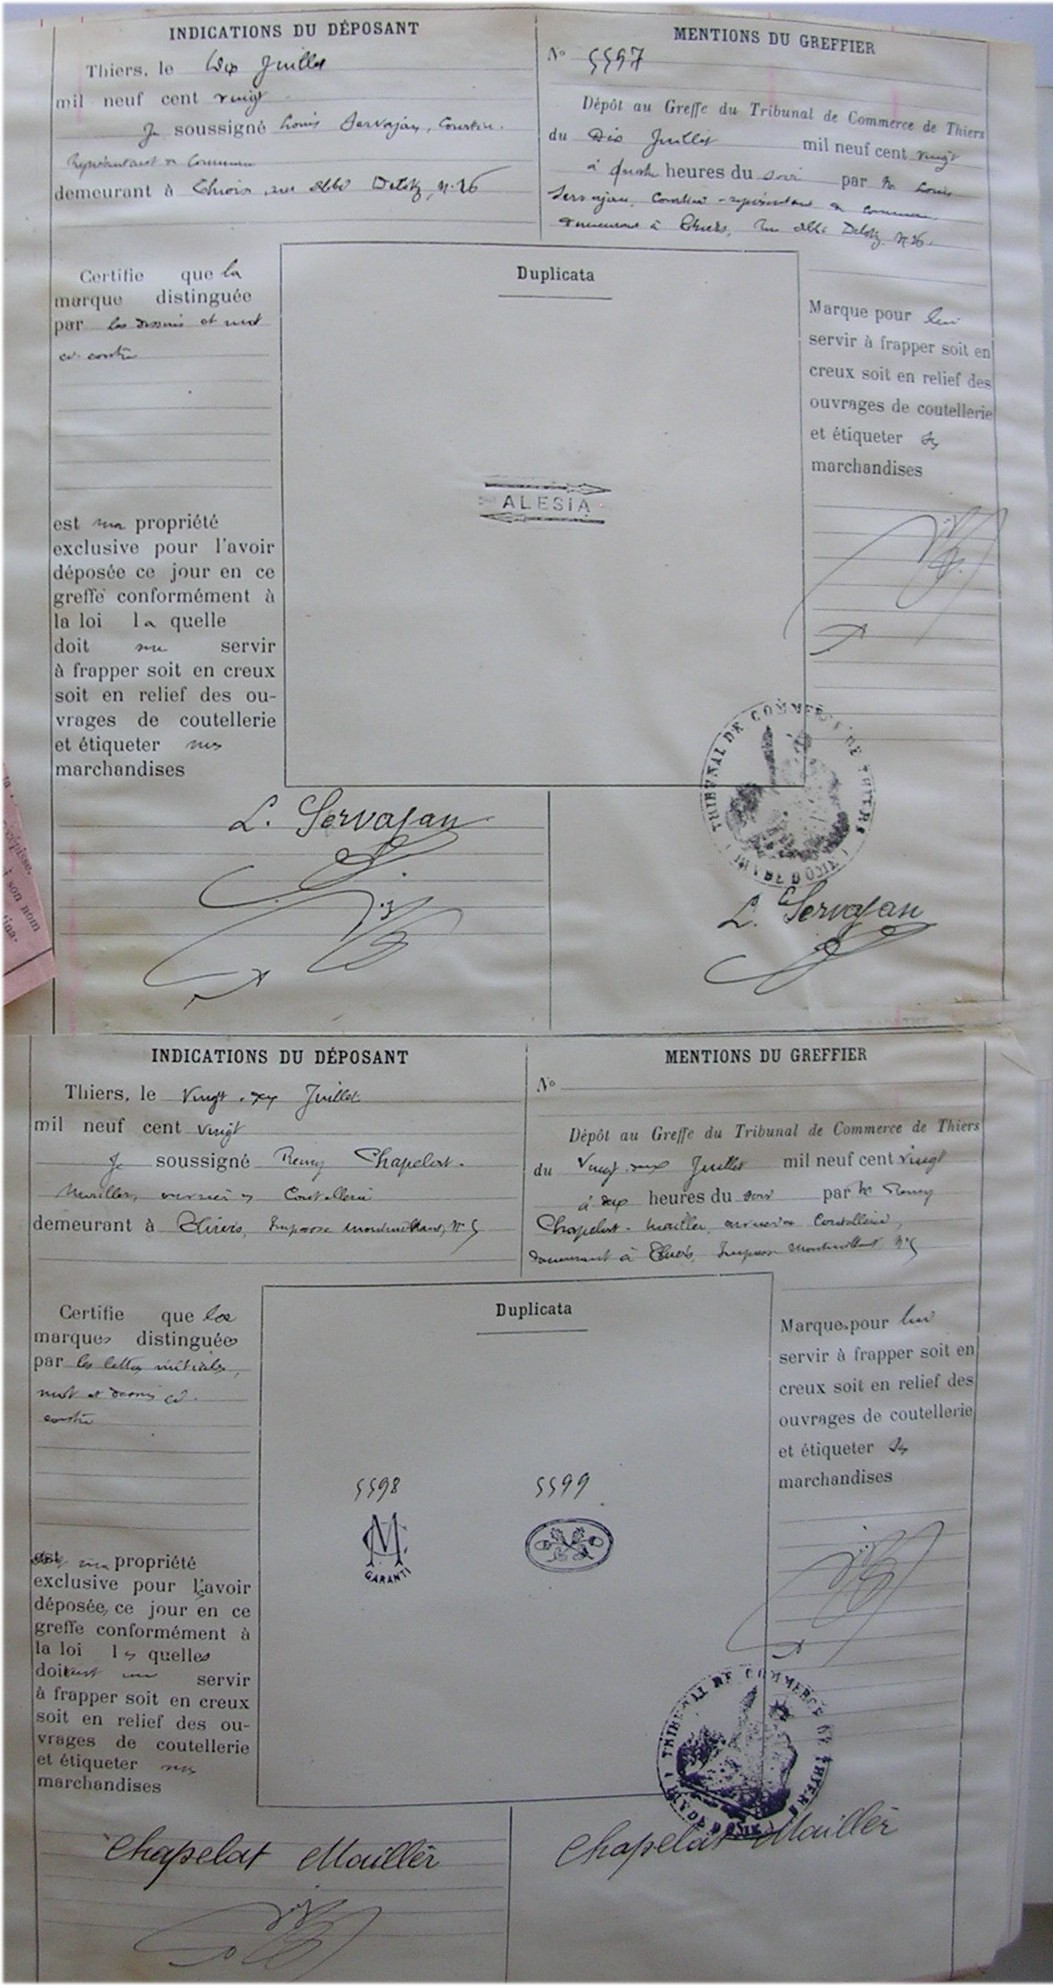 INDICATIONS DU DÉPOSANT
Thiers, le Dix Juillet
mil neuf cent vingt
Je soussigné Louis Servajan, Courtier.
Représentant de Commerce
demeurant à Thiers, rue abbé Delotz, n. 26
MENTIONS DU GREFFIER
No 5597
Dépôt au Greffe du Tribunal de Commerce de Thiers
du Dix Juillet mil neuf cent vingt
à quatre heures du soir par Mr Louis
Servajan, Courtier - représentant de commerce
demeurant à Thiers, rue abbé Delotz. n. 26.
Certifie que la
marque distinguée
par les dessins et mot
ci-contre
est ma propriété
exclusive pour l'avoir
déposée ce jour en ce
greffe conformément à
la loi la quelle
doit me servir
à frapper soit en creux
soit en relief des ou-
vrages de coutellerie
et étiqueter mes
marchandises
Duplicata
ALESIA
Marque pour lui
servir à frapper soit en
creux soit en relief des
ouvrages de coutellerie
et étiqueter ses
marchandises
TRIBUNAL DE COMMERCE DE THIERS
L. Servajan
L. Servajan
INDICATIONS DU DÉPOSANT
Thiers, le Vingt-six Juillet
mil neuf cent vingt
Je soussigné Remy Chapelat-
Mailler, ouvrier en Coutellerie
demeurant à Thiers, Impasse n° 5
MENTIONS DU GREFFIER
No
Dépôt au Greffe du Tribunal de Commerce de Thiers
du Vingt-six Juillet mil neuf cent vingt
à six heures du soir par Mr Remy
Chapelat-Mailler ouvrier en Coutellerie,
demeurant à Thiers, Impasse n° 5
Certifie que les
marques distinguées
par les lettres initiales,
mot et dessin ci-
contre
est ma propriété
exclusive pour l'avoir
déposée, ce jour en ce
greffe conformément à
la loi les quelles
doivent me servir
à frapper soit en creux
soit en relief des ou-
vrages de coutellerie
et étiqueter mes
marchandises
Duplicata
5598
5599
CM
GARANTI
Marques pour lui
servir à frapper soit en
creux soit en relief des
ouvrages de coutellerie
et étiqueter ses
marchandises
TRIBUNAL DE COMMERCE DE THIERS
Chapelat Mailler
Chapelat Mailler